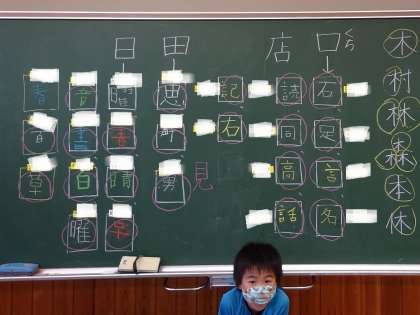 木
村
林
森
本
休
口
くち
石
足
言
名
店
読
同
高
話
記
右
田
思
町
男
見
日
曜
書
晴
早
音
書
白
曜
音
百
草